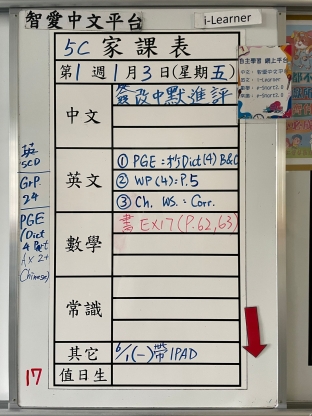 智愛中文平台
i-Learner
5C 家課表
第1週1月3日(星期五)
自主學習 網上平台
中文
簽改中默進評
英文
① PGE:抄Dict(4) B&C
② WP(4):P.5
③ Ch. WS.: Corr.
數學
書 EX17(P.62,63)
常識
其它
6/1(一)帶IPAD
值日生
17
英
GrP.
24
PGE
(Dict
4 Part
Chinese)